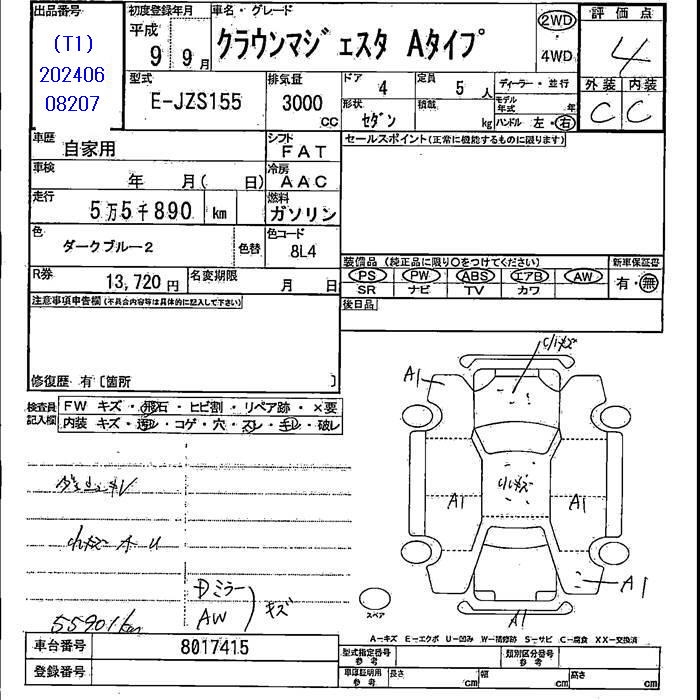 出品番号 初度登録年月 車名・グレード 評価点
(T1) 平成 クラウンマジェスタ Aタイプ 2WD 4
202406 9 9月 4WD
08207 型式 排気量 ドア 4 定員 5人 ディーラー・並行 外装 内装
E-JZS155 3000cc 形状 セダン 積載 kg モデル年式 年 C C
ハンドル 左・右
車歴 自家用 シフト FAT セールスポイント(正常に機能するものに限ります)
車検 年 月( 日) 冷房 AAC
走行 5万5千890 km 燃料 ガソリン
色 ダークブルー2 色替 色コード 8L4
装備品(純正品に限り○をつけてください) 新車保証書
R券 13,720円 名変期限 月 日 PS PW ABS エアB AW 有・無
SR ナビ TV カワ
注意事項申告欄(不具合内容等は具体的に記入して下さい) 後日品
修復歴 有〔箇所 〕
検査員記入欄 FW キズ・飛石・ヒビ割・リペア跡・×要
内装 キズ・汚レ・コゲ・穴・スレ・キレ・破レ
A1
A1 A1
A1
A1
小キズ A U
Dミラー
AW キズ
55901km スペア
A−キズ E−エクボ U−凹み W−補修跡 S−サビ C−腐食 XX−交換済
車台番号 8017415 型式指定番号 参考 類別区分番号 参考
登録番号 車庫証明用 参考 長さ cm 幅 cm 高さ cm